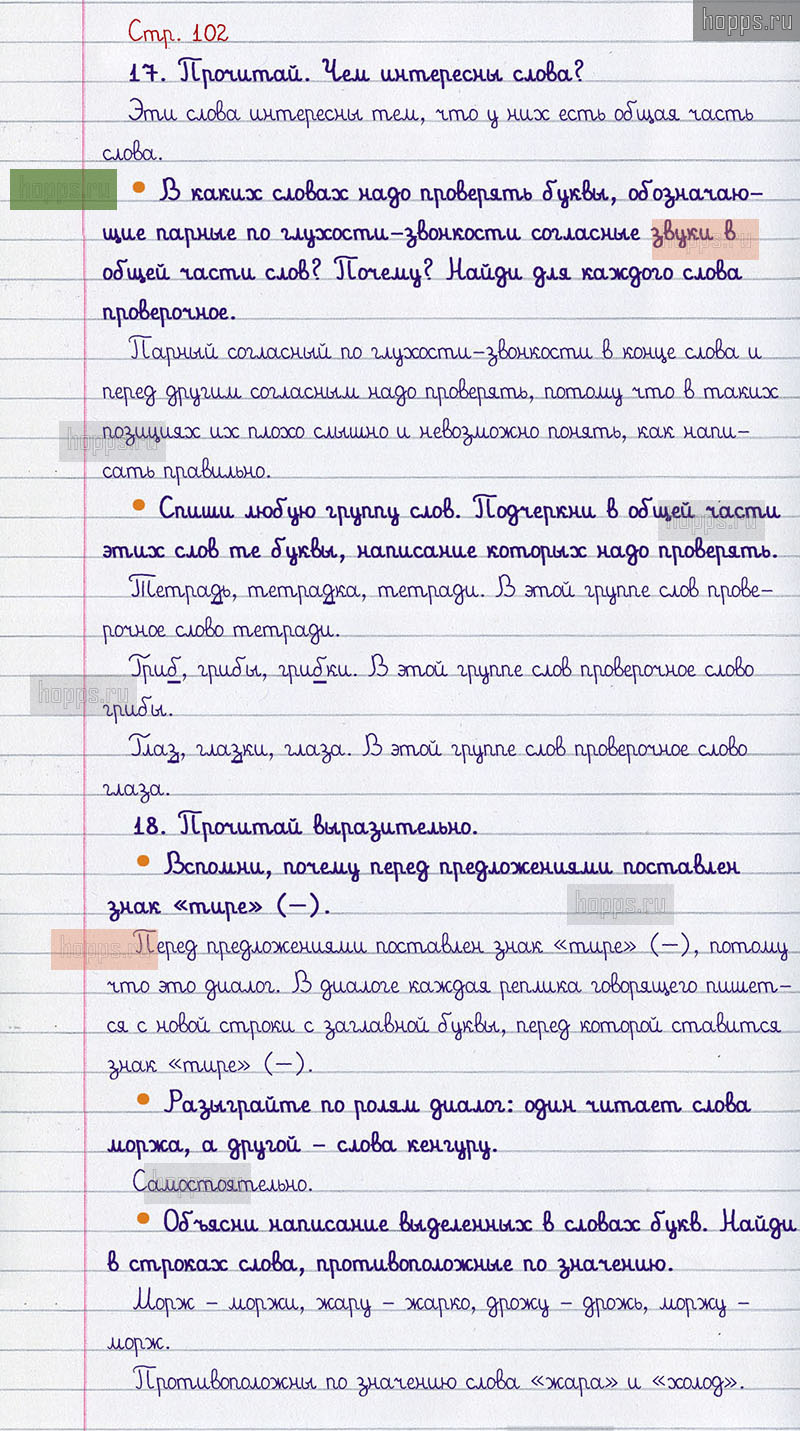 hopps.ru
Стр. 102
17. Прочитай. Чем интересны слова?
Эти слова интересны тем, что у них есть общая часть
слова.
hopps.ru
• В каких словах надо проверять буквы, обозначаю-
щие парные по глухости-звонкости согласные звуки в
hopps.ru
общей части слов? Почему? Найди для каждого слова
проверочное.
Парный согласный по глухости-звонкости в конце слова и
перед другим согласным надо проверять, потому что в таких
позициях их плохо слышно и невозможно понять, как напи-
hopps.ru
сать правильно.
• Спиши любую группу слов. Подчеркни в общей части
hopps.ru
этих слов те буквы, написание которых надо проверять.
Тетрадь, тетрадка, тетради. В этой группе слов прове-
рочное слово тетради.
Гриб, грибы, грибки. В этой группе слов проверочное слово
hopps.ru
грибы.
Глаз, глазки, глаза. В этой группе слов проверочное слово
глаза.
18. Прочитай выразительно.
• Вспомни, почему перед предложениями поставлен
знак «тире» (–).
hopps.ru
Перед предложениями поставлен знак «тире» (–), потому
hopps.ru
что это диалог. В диалоге каждая реплика говорящего пишет-
ся с новой строки с заглавной буквы, перед которой ставится
знак «тире» (–).
• Разыграйте по ролям диалог: один читает слова
моржа, а другой – слова кенгуру.
Самостоятельно.
hopps.ru
• Объясни написание выделенных в словах букв. Найди
в строках слова, противоположные по значению.
Морж – моржи, жару – жарко, дрожу – дрожь, моржу –
морж.
Противоположны по значению слова «жара» и «холод».